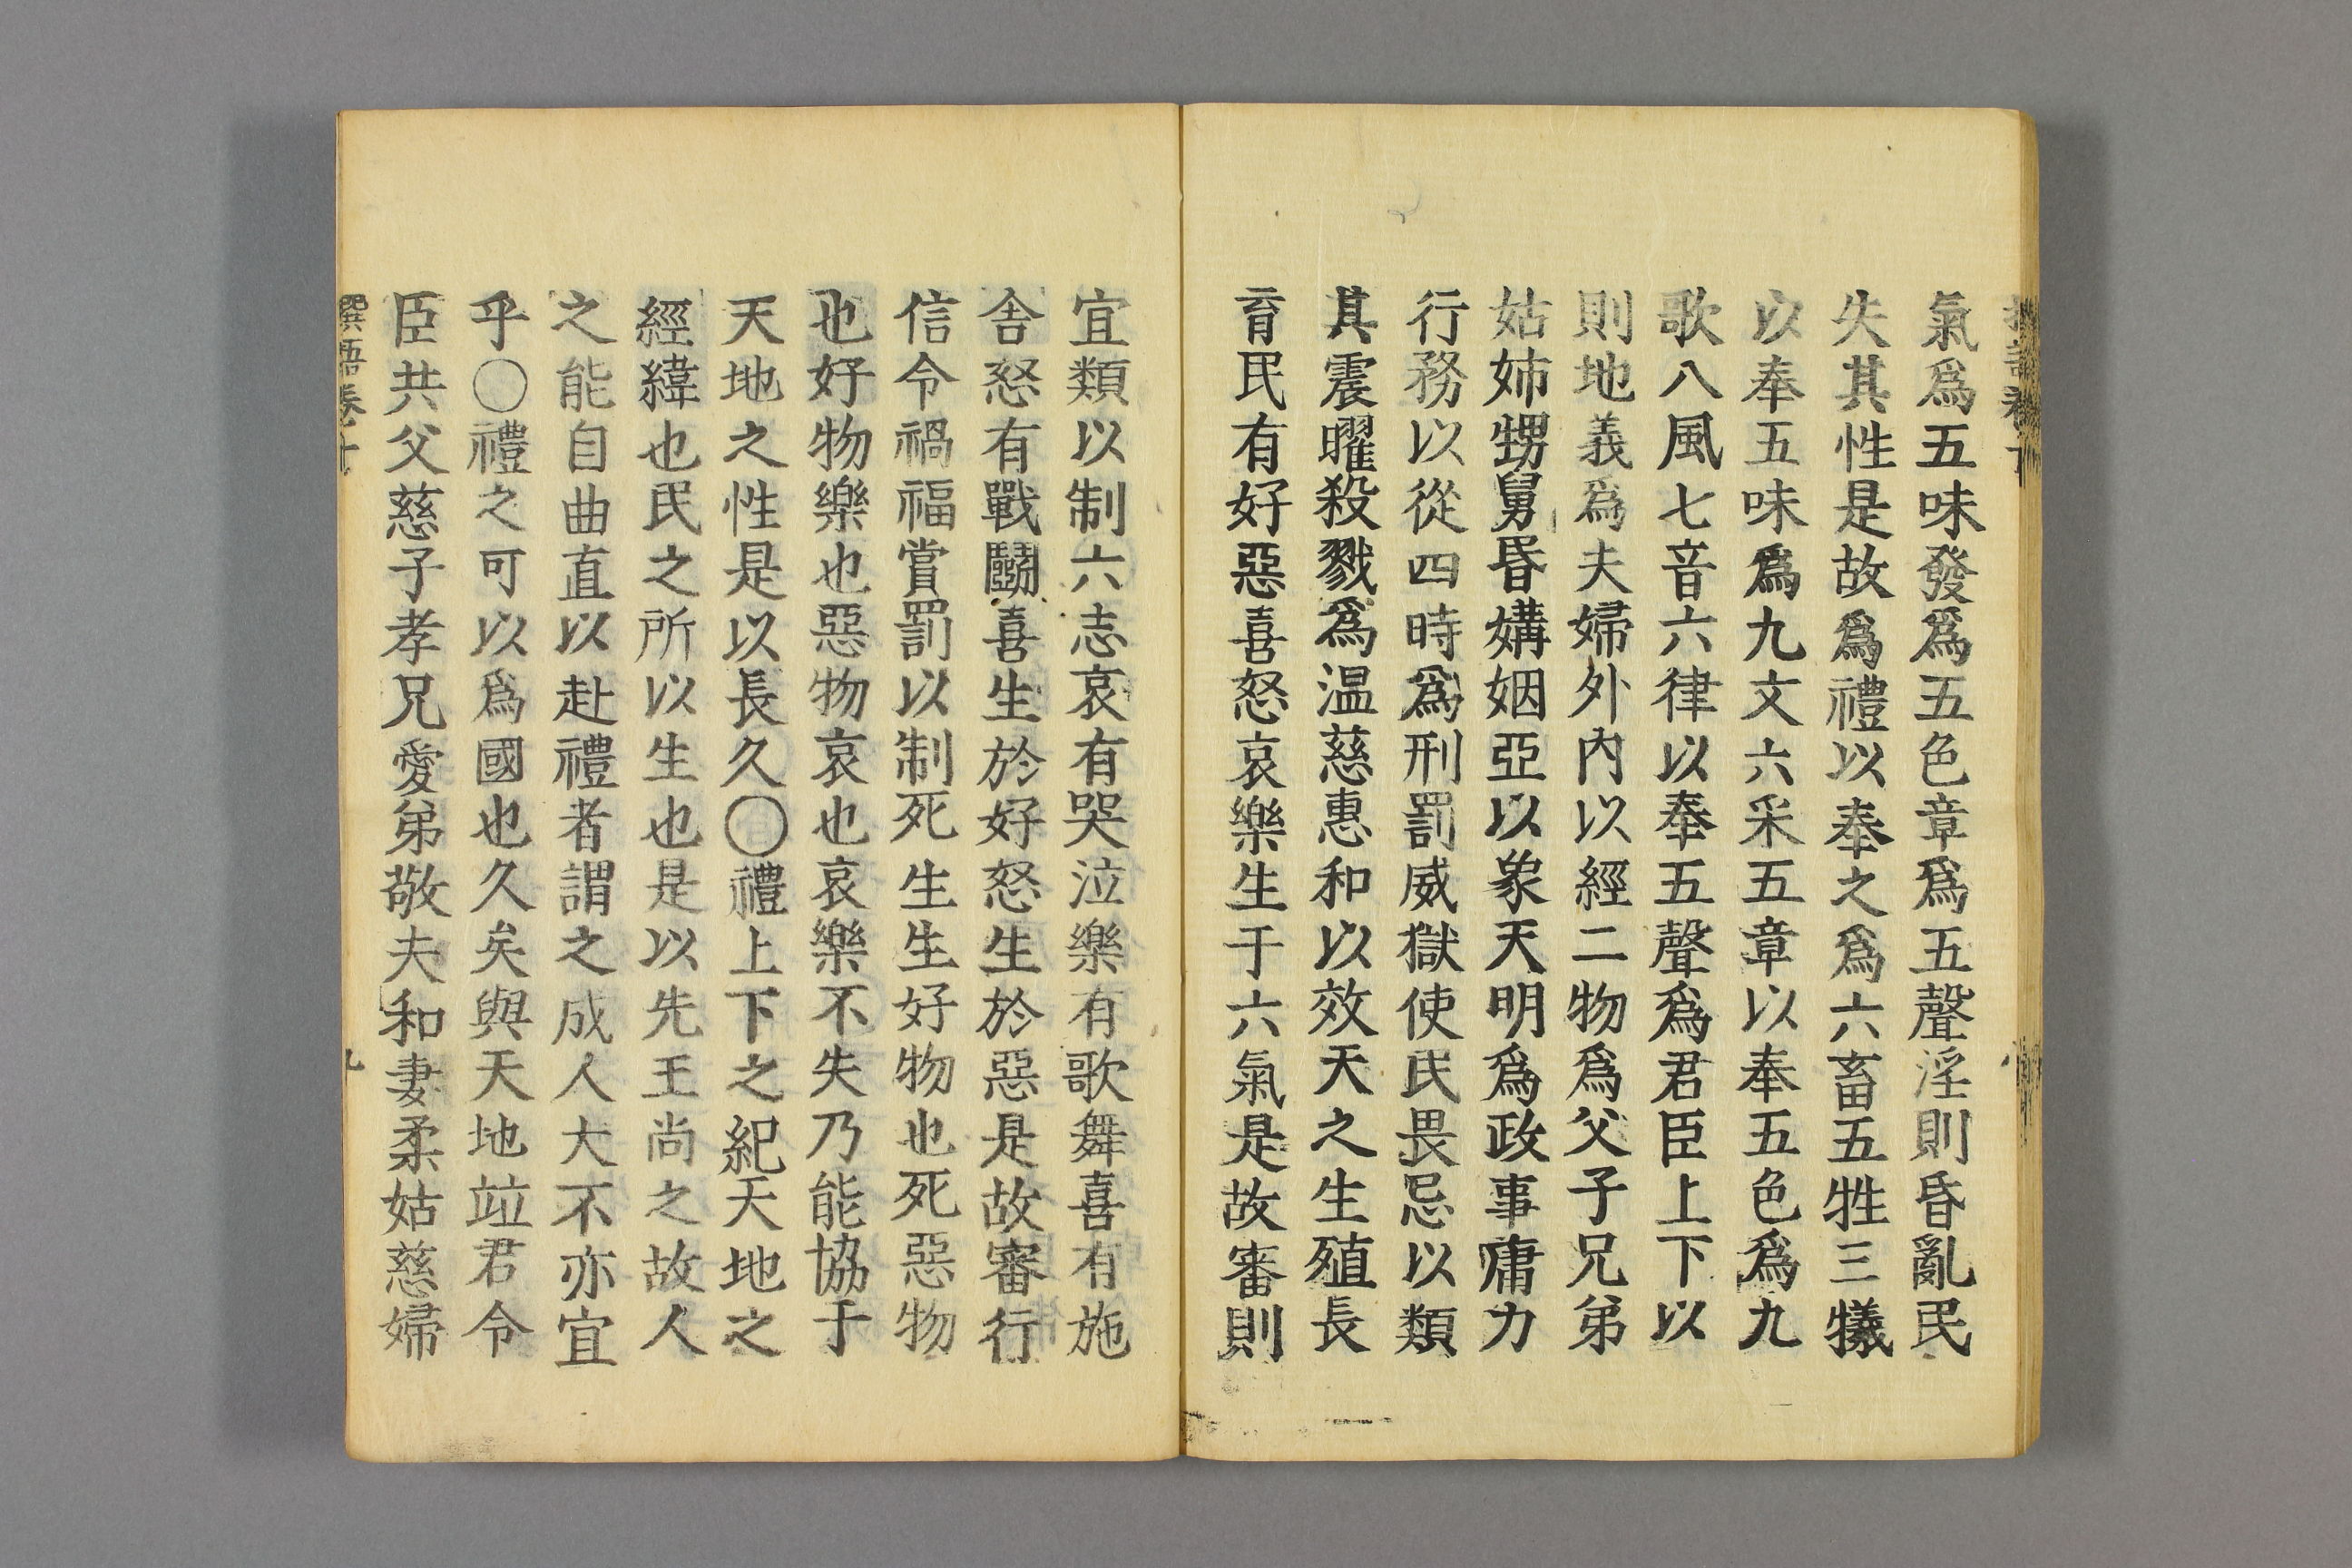 氣爲五味發爲五色章爲五聲淫則昏亂民
失其性是故爲禮以奉之爲六畜五牲三犧
以奉五味爲九文六采五章以奉五色爲九
歌八風七音六律以奉五聲爲君臣上下以
則地義爲夫婦外內以經二物爲父子兄弟
姑姉甥舅昏媾姻亞以象天明爲政事庸力
行務以從四時爲刑罰威獄使民畏忌以類
其震曜殺戮爲温慈惠和以效天之生殖長
育民有好惡喜怒哀樂生于六氣是故審則
宜類以制六志哀有哭泣樂有歌舞喜有施
舍怒有戰鬭喜生於好怒生於惡是故審行
信令禍福賞罰以制死生生好物也死惡物
也好物樂也惡物哀也哀樂不失乃能協于
天地之性是以長久○禮上下之紀天地之
經緯也民之所以生也是以先王尚之故人
之能自曲直以赴禮者謂之成人大不亦宜
乎○禮之可以爲國也久矣與天地竝君令
臣共父慈子孝兄愛弟敬夫和妻柔姑慈婦